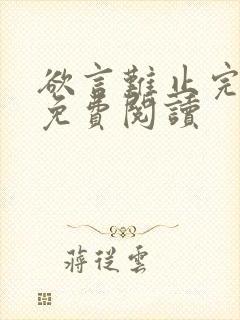 欲言難止完
免費閱讀
蔣從雲